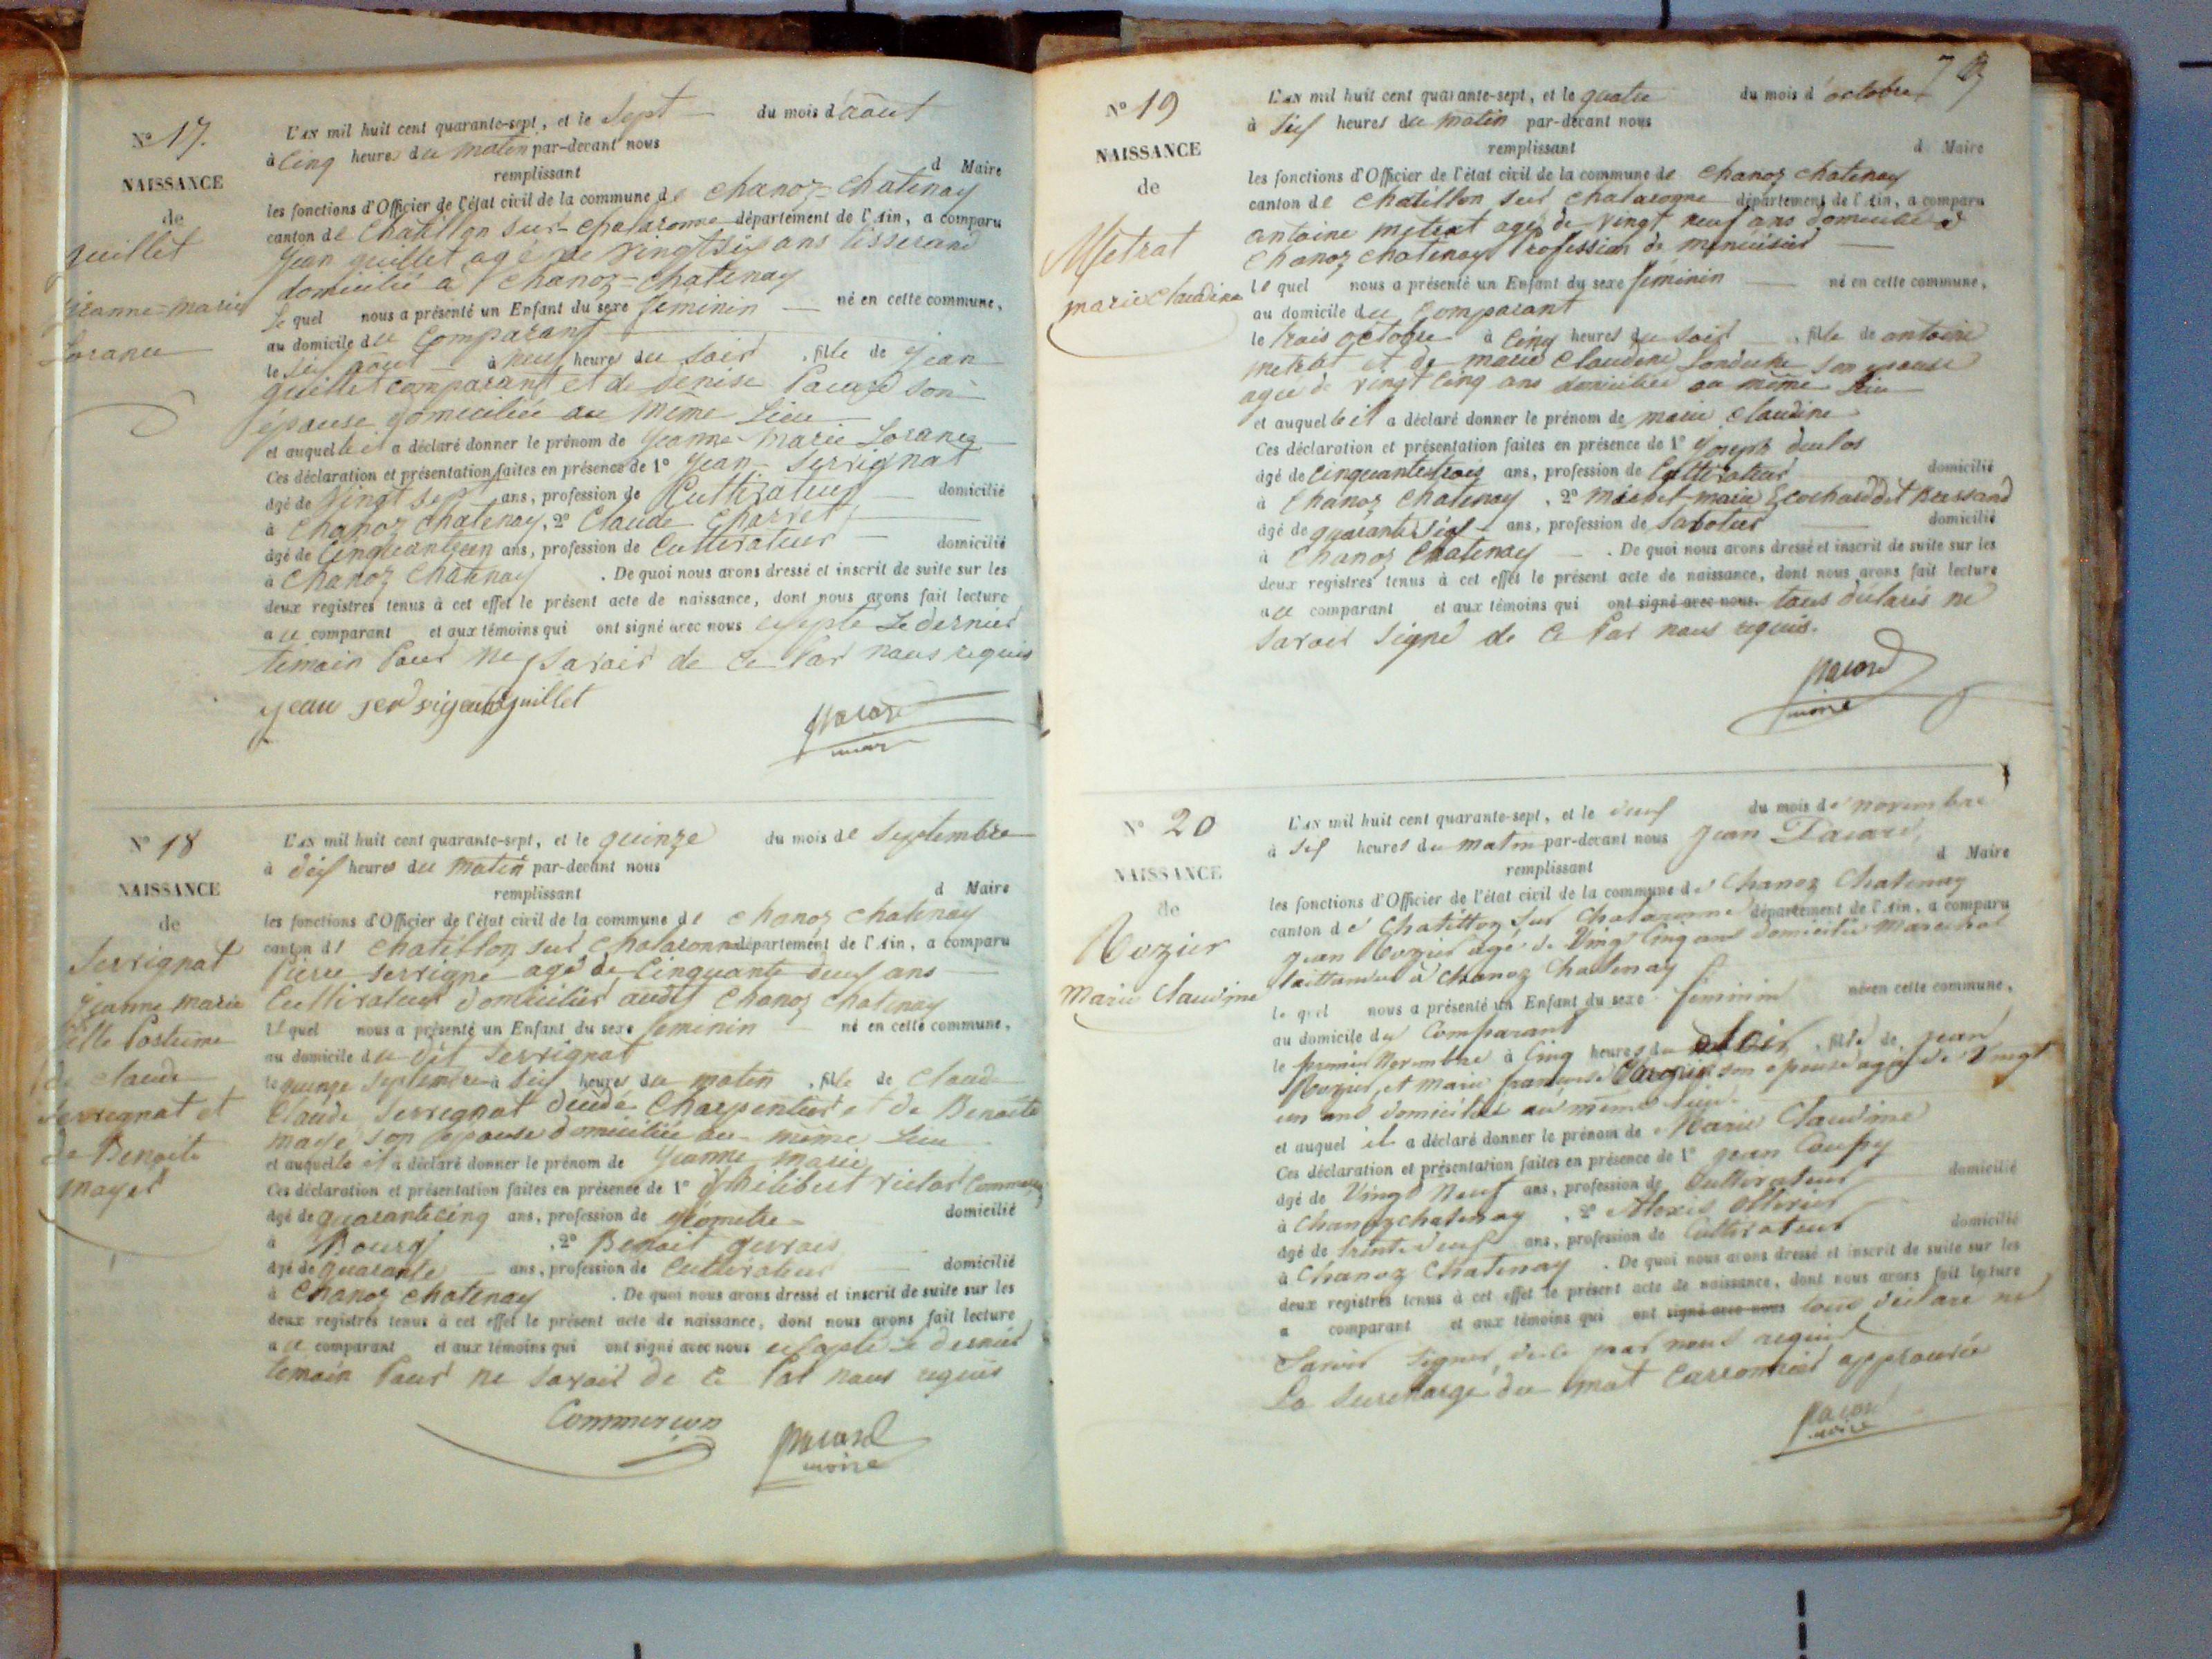 N° 17.
NAISSANCE
de
quillet
jeanne=marie
Lorance
L'AN mil huit cent quarante-sept, et le Sept du mois d'aout
à Cinq heures du matin par-devant nous
remplissant d Maire
les fonctions d'Officier de l'état civil de la commune de Chanoz=Chatenay
canton de Chatillon sur Chalaronne département de l'Ain, a comparu
Jean quillet agé de vingt six ans tisserand
domicilié à Chanoz=Chatenay
Le quel nous a présenté un Enfant du sexe feminin né en cette commune,
au domicile du Comparant
le six aout à neuf heures du soir, fille de Jean
quillet comparant et de Denise Pacard son
épouse domiciliée au même Lieu
et auquelle il a déclaré donner le prénom de Jeanne Marie Lorance
Ces déclaration et présentation faites en présence de 1° Jean Servignat
âgé de Vingt sept ans, profession de Cultivateur domicilié
à Chanoz Chatenay, 2° Claude Charvet
âgé de Cinquante un ans, profession de Cultivateur domicilié
à Chanoz Chatenay. De quoi nous avons dressé et inscrit de suite sur les
deux registres tenus à cet effet le présent acte de naissance, dont nous avons fait lecture
au comparant et aux témoins qui ont signé avec nous excepté Le dernier
témoin Pour ne savoir de ce Par nous requis
jean servignat quillet
pacard
maire
N° 18
NAISSANCE
de
Servignat
jeanne marie
fille Postume
de claude
servignat et
de Benoite
mayet
L'AN mil huit cent quarante-sept, et le quinze du mois de Septembre
à dix heures du matin par-devant nous
remplissant d Maire
les fonctions d'Officier de l'état civil de la commune de Chanoz Chatenay
canton de Chatillon sur Chalaronne département de l'Ain, a comparu
Pierre servigné agé de Cinquante deux ans
Cultivateur domicilier audit Chanoz Chatenay
Le quel nous a présenté un Enfant du sexe feminin né en cette commune,
au domicile du dit Servignat
le quinze Septembre à six heures du matin, fille de Claude
Claude Servignat décédé Charpentier et de Benoite
mayé son épouse domiciliée au même Lieu
et auquelle il a déclaré donner le prénom de Jeanne marie
Ces déclaration et présentation faites en présence de 1° Philibert victor Commerçon
âgé de quarante cinq ans, profession de géometre domicilié
à Bourg, 2° Benoit gervais
âgé de quarante ans, profession de Cultivateur domicilié
à Chanoz Chatenay. De quoi nous avons dressé et inscrit de suite sur les
deux registres tenus à cet effet le présent acte de naissance, dont nous avons fait lecture
au comparant et aux témoins qui ont signé avec nous excepté Le dernier
temoin Pour ne Savoir de ce Par nous requis
Commerçon
pacard
maire
N° 19
NAISSANCE
de
Metrat
marie claudine
L'AN mil huit cent quarante-sept, et le quatre du mois d'octobre
à six heures du matin par-devant nous
remplissant d Maire
les fonctions d'Officier de l'état civil de la commune de Chanoz Chatenay
canton de Chatillon sur Chalaronne département de l'Ain, a comparu
antoine metrat agé de vingt neuf ans domicilié à
Chanoz Chatenay Profession de menuisier
le quel nous a présenté un Enfant du sexe féminin né en cette commune,
au domicile du Comparant
le trois octobre à Cinq heures du soir, fille de antoine
metrat et de marie Claudine son epouse
agée de vingt Cinq ans domiciliée au même Lieu
et auquelle il a déclaré donner le prénom de marie claudine
Ces déclaration et présentation faites en présence de 1° joseph duclos
âgé de Cinquante trois ans, profession de Cultivateur domicilié
à Chanoz Chatenay, 2° michel-marie Ecochard dit
âgé de quarante six ans, profession de sabotier domicilié
à Chanoz Chatenay. De quoi nous avons dressé et inscrit de suite sur les
deux registres tenus à cet effet le présent acte de naissance, dont nous avons fait lecture
au comparant et aux témoins qui ont signé avec nous. tous déclarés ne
savoir signé de ce Par nous requis.
pacard
maire
N° 20
NAISSANCE
de
Rozier
Marie Claudine
L'AN mil huit cent quarante-sept, et le deux du mois de novembre
à six heures du matin par-devant nous Jean Pacard
remplissant d Maire
les fonctions d'Officier de l'état civil de la commune de Chanoz Chatenay
canton de Chatillon sur Chalaronne département de l'Ain, a comparu
Jean Rozier agé de Vingt Cinq ans domicilié Marechal
taillandier à Chanoz Chatenay
le quel nous a présenté un Enfant du sexe féminin né en cette commune,
au domicile du Comparant
le premier Novembre à Cinq heures du soir, fille de Jean
Rozier et Marie françoise son epouse agée de Vingt
un ans domiciliée au même lieu
et auquel il a déclaré donner le prénom de Marie Claudine
Ces déclaration et présentation faites en présence de 1° Jean
âgé de Vingt Neuf ans, profession de Cultivateur domicilié
à Chanoz chatenay, 2° Alexis ollivier
âgé de trente deux ans, profession de Cultivateur domicilié
à Chanoz Chatenay. De quoi nous avons dressé et inscrit de suite sur les
deux registres tenus à cet effet le présent acte de naissance, dont nous avons fait lecture
a comparant et aux témoins qui ont signé avec nous tous déclaré ne
Savoir signer de ce par nous requis
La surcharge du mot Carronnier approuvée
pacard
maire